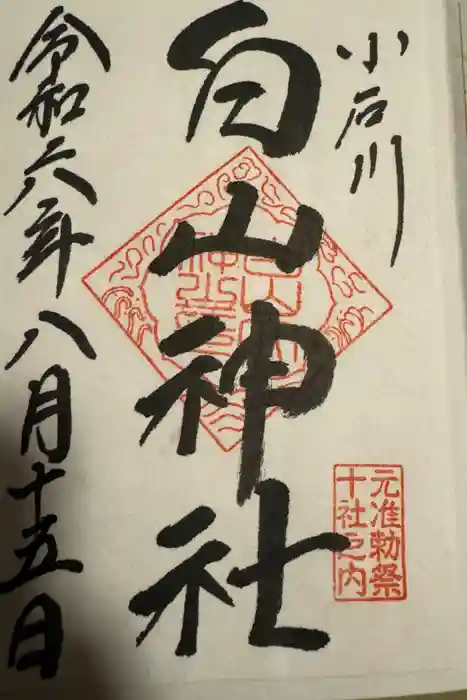 小石川
白山神社
元准勅祭
十社之内
令和六年八月十五日